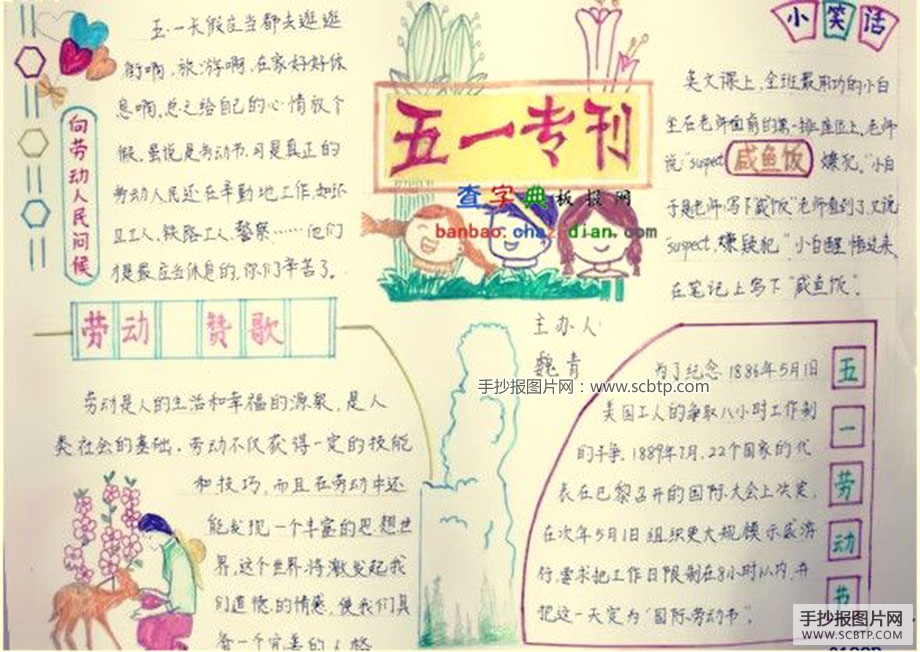 向劳动人民问候
五一长假应当都去逛逛
街啊，旅游啊，在家好好休
息啊，总之给自己的心情放个
假。虽说是劳动节，可是真正的
劳动人民还在辛勤地工作，如环
卫工人、铁路工人、警察……他们
才是最应当休息的，你们辛苦了。
五一专刊
查字典板报网
banbao.chazidian.com
小笑话
英文课上，全班最用功的小白
坐在老师面前的第一排座位上，老师
说："suspect
咸鱼饭
嫌犯。"小白
于是老师，写下咸饭"老师看到了，又说
"suspect，嫌疑犯。"小白醒悟过来，
在笔记上写下"咸鱼饭"。
劳动 赞歌
劳动是人的生活和幸福的源泉，是人
类社会的基础，劳动不仅获得一定的技能
和技巧，而且在劳动中还
能发现一个丰富的思想世
界，这个世界将激发起我
们道德的情感，使我们具
备一个完善的人格
主办人
魏青
手抄报图片网：www.scbtp.com
五一劳动节
为了纪念1886年5月1日
美国工人的争取八小时工作制
的斗争，1889年7月，22个国家的代
表在巴黎召开的国际大会上决定，
在次年5月1日组织更大规模示威游
行，要求把工作日限制在8小时以内，并
把这一天定为"国际劳动节"。
手抄报图片网
www.SCBTP.com